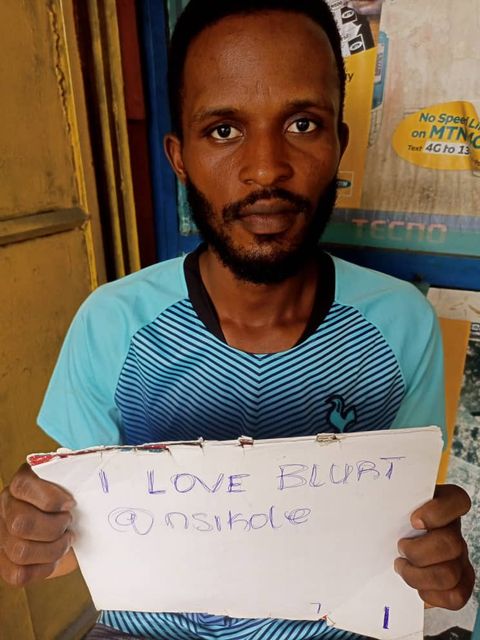 No Speed Li
on MTN
Text 4G to 13
TECNO
I LOVE BLURT
@nsikole